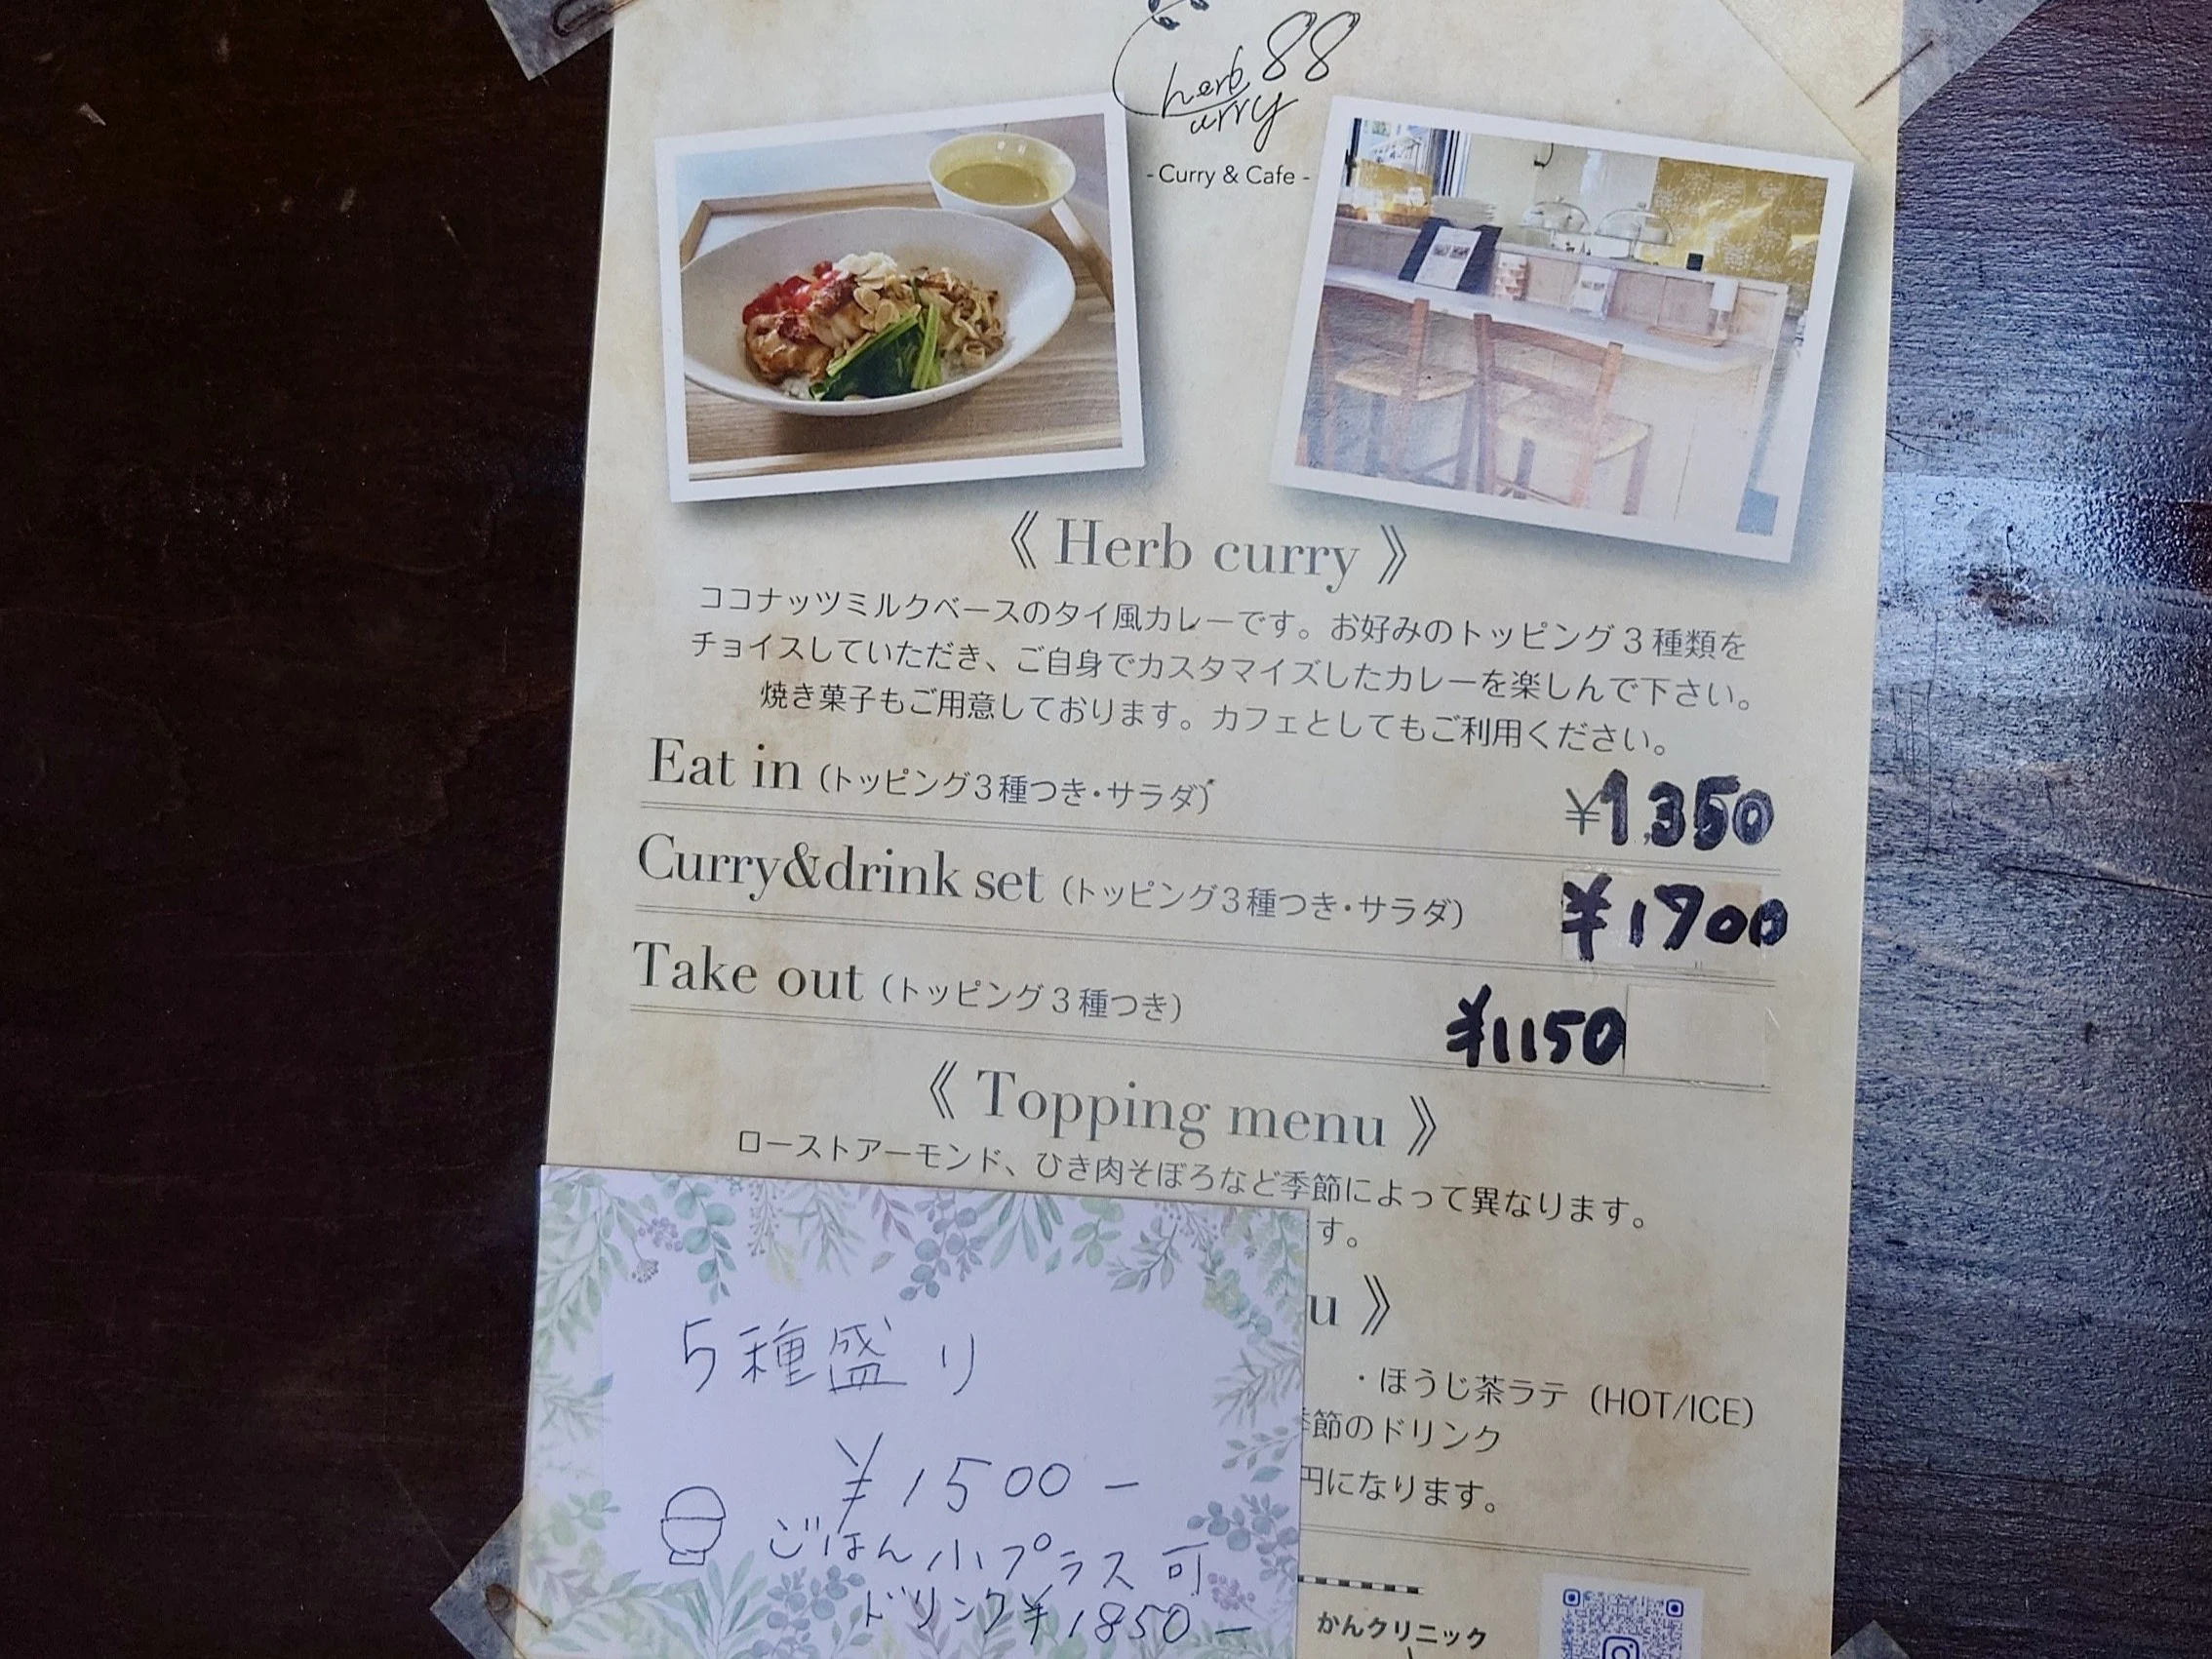 herb curry 88
- Curry & Cafe -
《 Herb curry 》
ココナッツミルクベースのタイ風カレーです。お好みのトッピング３種類を
チョイスしていただき、ご自身でカスタマイズしたカレーを楽しんで下さい。
焼き菓子もご用意しております。カフェとしてもご利用ください。
Eat in (トッピング3種つき・サラダ) ¥1,350
Curry&drink set (トッピング3種つき・サラダ) ¥1700
Take out (トッピング３種つき) ¥1150
《 Topping menu 》
ローストアーモンド、ひき肉そぼろなど季節によって異なります。
す。
u 》
・ほうじ茶ラテ（HOT/ICE）
節のドリンク
円になります。
かんクリニック
5種盛り
¥1500－
ごはん小プラス可
ドリンク¥1850－